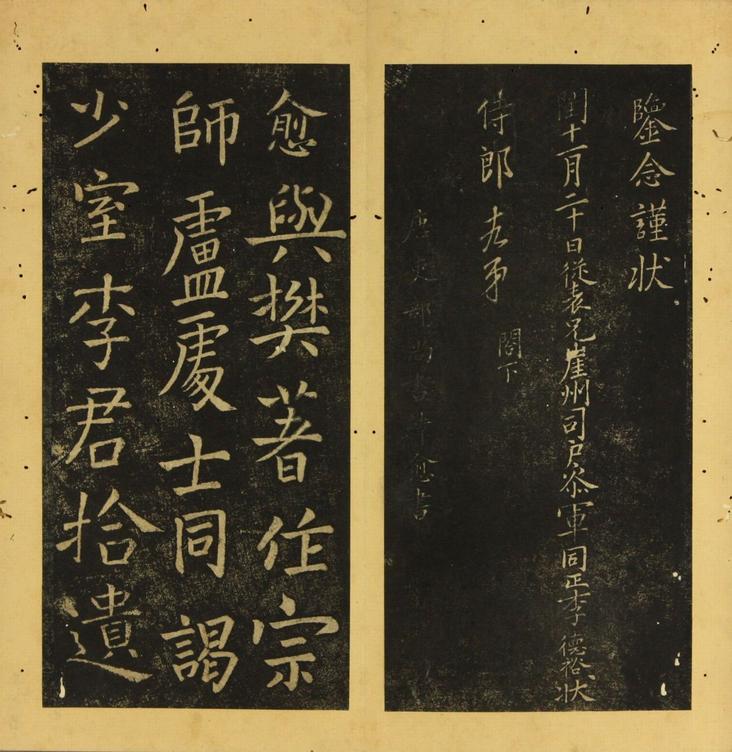 鑒念謹狀
閏十一月二十日從表兄崖州司戶叅軍同正李德裕狀
侍郎
閤下
唐吏部尚書韓愈書
愈與樊著作宗
師盧處士同謁
少室李君拾遺